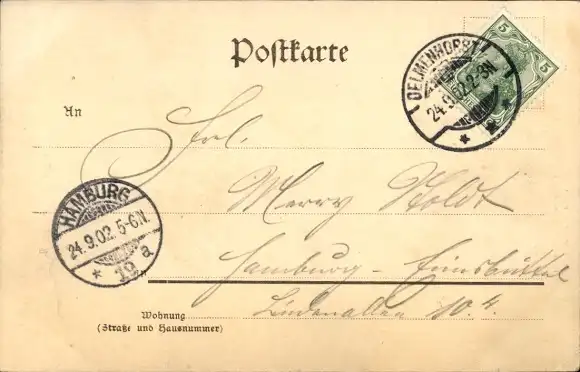 Postkarte
5 5
DELMENHORST
24.9.02.2-3N
* 2 *
An
Frl.
Merry Holdt
HAMBURG
24.9.02.5-6N.
* 19 a
Hamburg-Eimsbüttel
in
Wohnung
Lindenallee 10.4.
(Straße und Hausnummer)